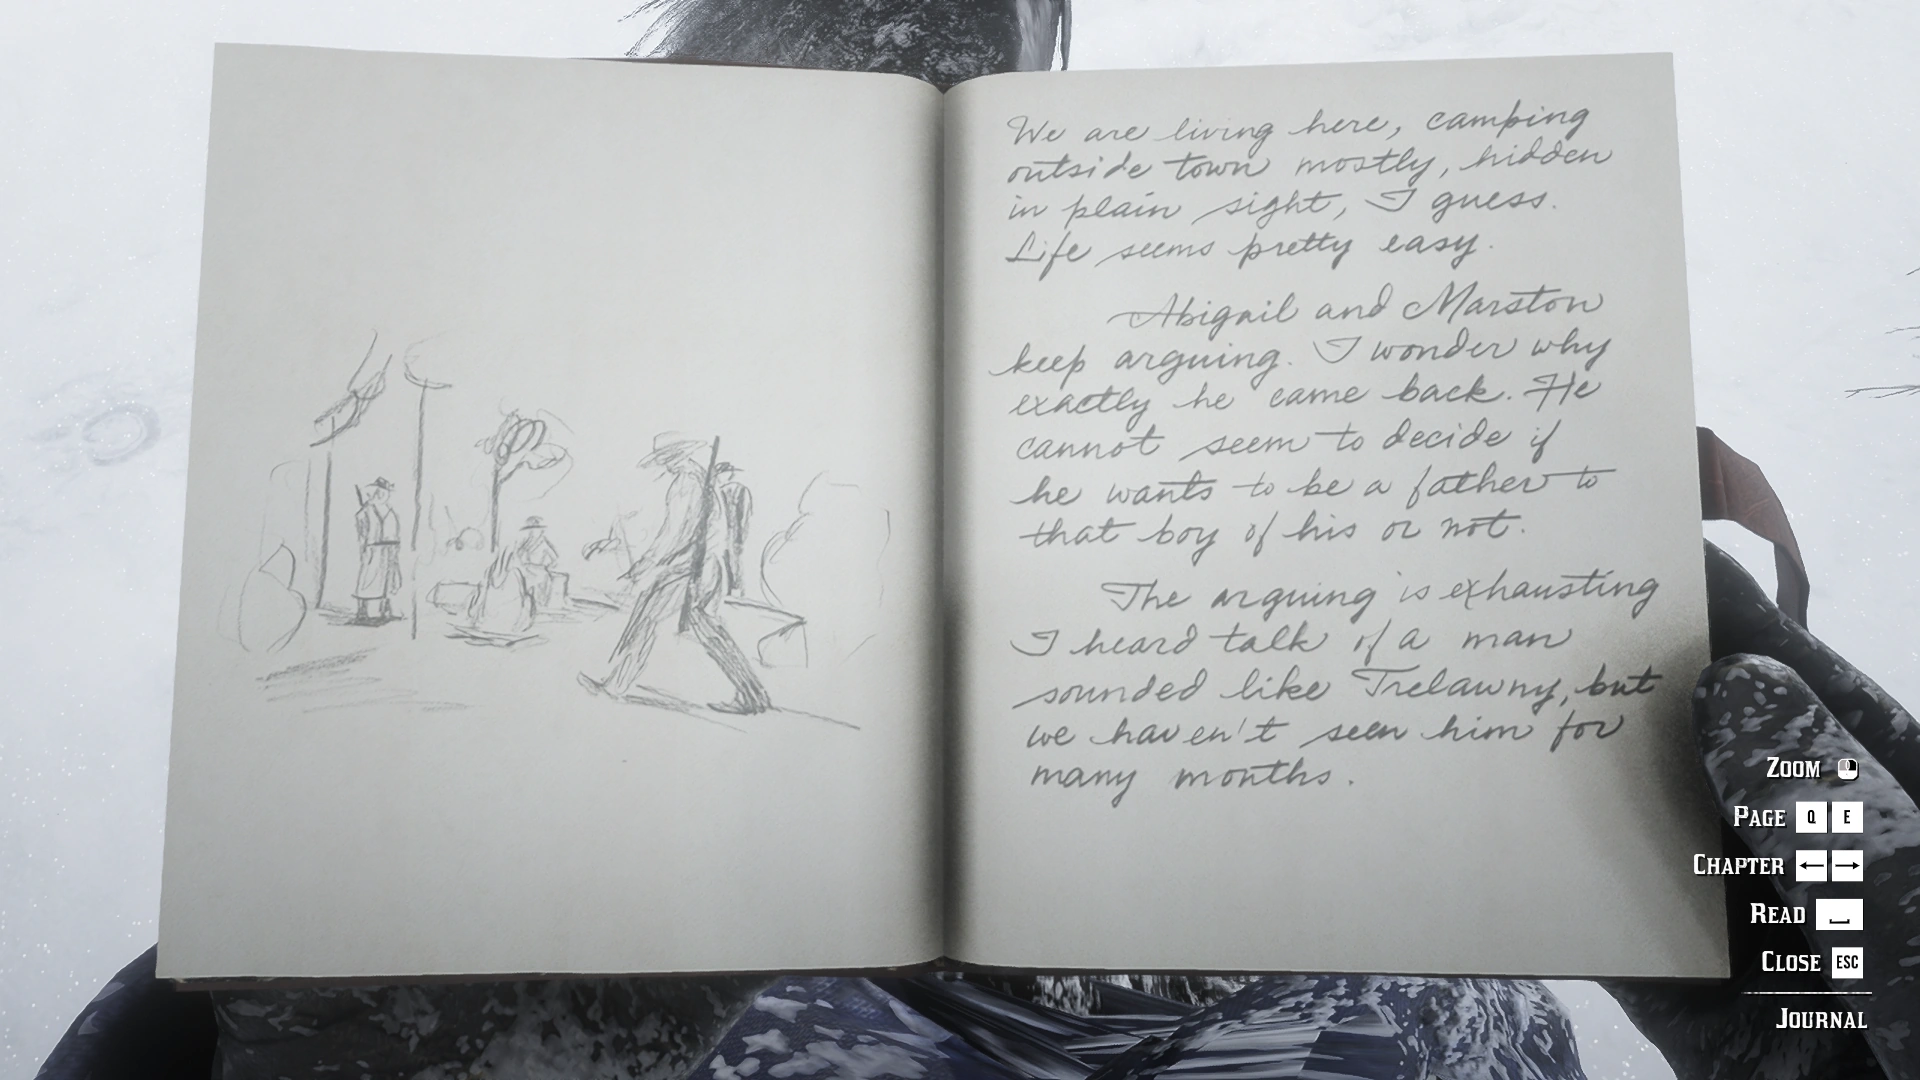 We are living here, camping
outside town mostly, hidden
in plain sight, I guess.
Life seems pretty easy.
Abigail and Marston
keep arguing. I wonder why
exactly he came back. He
cannot seem to decide if
he wants to be a father to
that boy of his or not.
The arguing is exhausting
I heard talk of a man
sounded like Trelawny, but
we haven't seen him for
many months.
ZOOM
PAGE Q E
CHAPTER ← →
READ
CLOSE ESC
JOURNAL